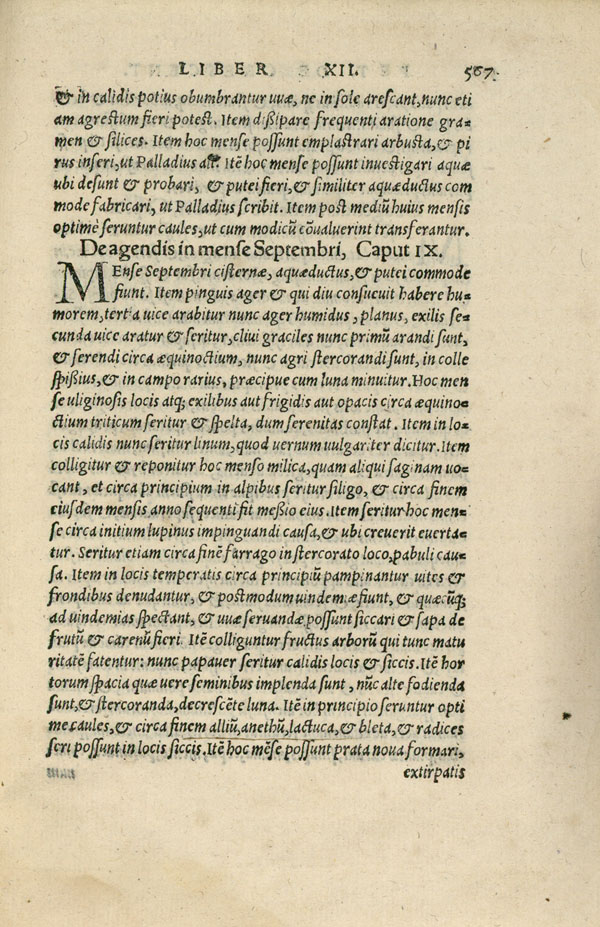 LIBER XII. 567
& in calidis potius obumbrantur uuæ, ne in sole arescant, nunc eti
am agrestum fieri potest. Item dißipare frequenti aratione gra-
men & filices. Item hoc mense possunt emplastrari arbusta, & pi
rus inseri, ut Palladius ait. Itẽ hoc mense possunt inuestigari aquæ
ubi desunt & probari, & putei fieri, & similiter aquæductus com
mode fabricari, ut Palladius scribit. Item post mediũ huius mensis
optimè seruntur caules, ut cum modicũ cõualuerint transferantur.
De agendis in mense Septembri, Caput IX.
MEnse Septembri cisternæ, aquæductus, & putei commode
fiunt. Item pinguis ager & qui diu consueuit habere hu-
morem, tertia uice arabitur nunc ager humidus, planus, exilis se-
cunda uice aratur & seritur, cliui graciles nunc primũ arandi sunt,
& serendi circa æquinoctium, nunc agri stercorandi sunt, in colle
spißius, & in campo rarius, præcipue cum luna minuitur. Hoc men
se uliginosis locis atq; exilibus aut frigidis aut opacis circa æquino-
ctium triticum seritur & spelta, dum serenitas constat. Item in lo-
cis calidis nunc seritur linum, quod uernum uulgariter dicitur. Item
colligitur & reponitur hoc menso milica, quam aliqui saginam uo-
cant, et circa principium in alpibus seritur siligo, & circa finem
eiusdem mensis, anno sequenti fit meßio eius. Item seritur hoc men-
se circa initium lupinus impinguandi causa, & ubi creuerit euerta-
tur. Seritur etiam circa finẽ farrago in stercorato loco, pabuli cau-
sa. Item in locis temperatis circa principiũ pampinantur uites &
frondibus denudantur, & postmodum uindemiæ fiunt, & quæcũq;
ad uindemias spectant, & uuæ seruandæ possunt siccari & sapa de
frutũ & carenũ fieri. Itẽ colliguntur fructus arborũ qui tunc matu
ritatẽ fatentur: nunc papauer seritur calidis locis & siccis. Itẽ hor
torum spacia quæ uere seminibus implenda sunt, nũc alte fodienda
sunt, & stercoranda, decrescẽte luna. Itẽ in principio seruntur opti
me caules, & circa finem alliũ, anethũ, lactuca, & bleta, & radices
seri possunt in locis siccis. Itẽ hoc mẽse possunt prata noua formari,
extirpatis